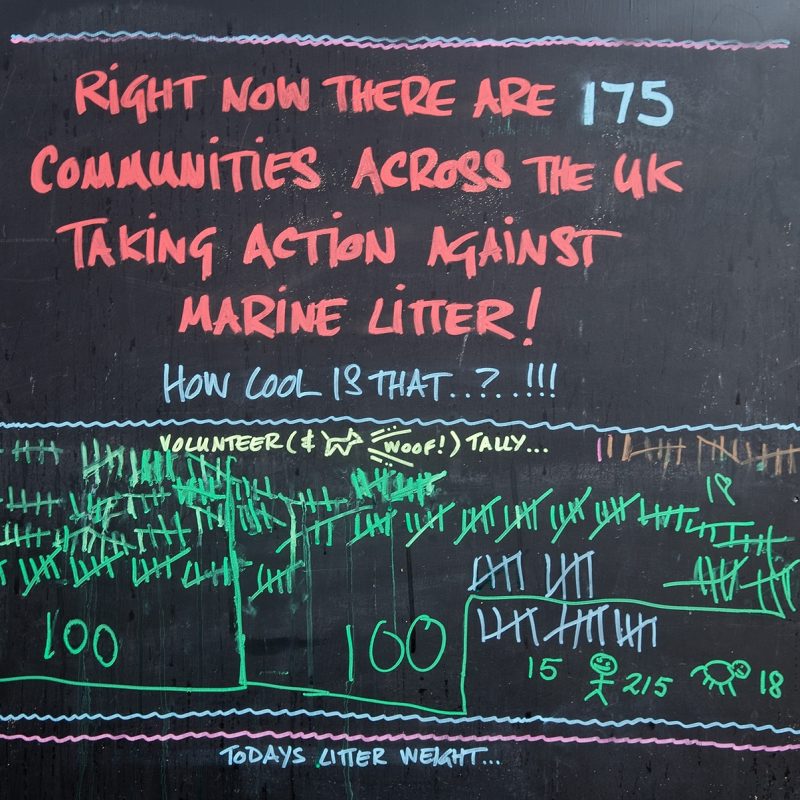 RIGHT NOW THERE ARE 175
COMMUNITIES ACROSS THE UK
TAKING ACTION AGAINST
MARINE LITTER!
HOW COOL IS THAT..?..!!!
VOLUNTEER (& WOOF!) TALLY...
18
100
100
15 215 18
TODAYS LITTER WEIGHT...